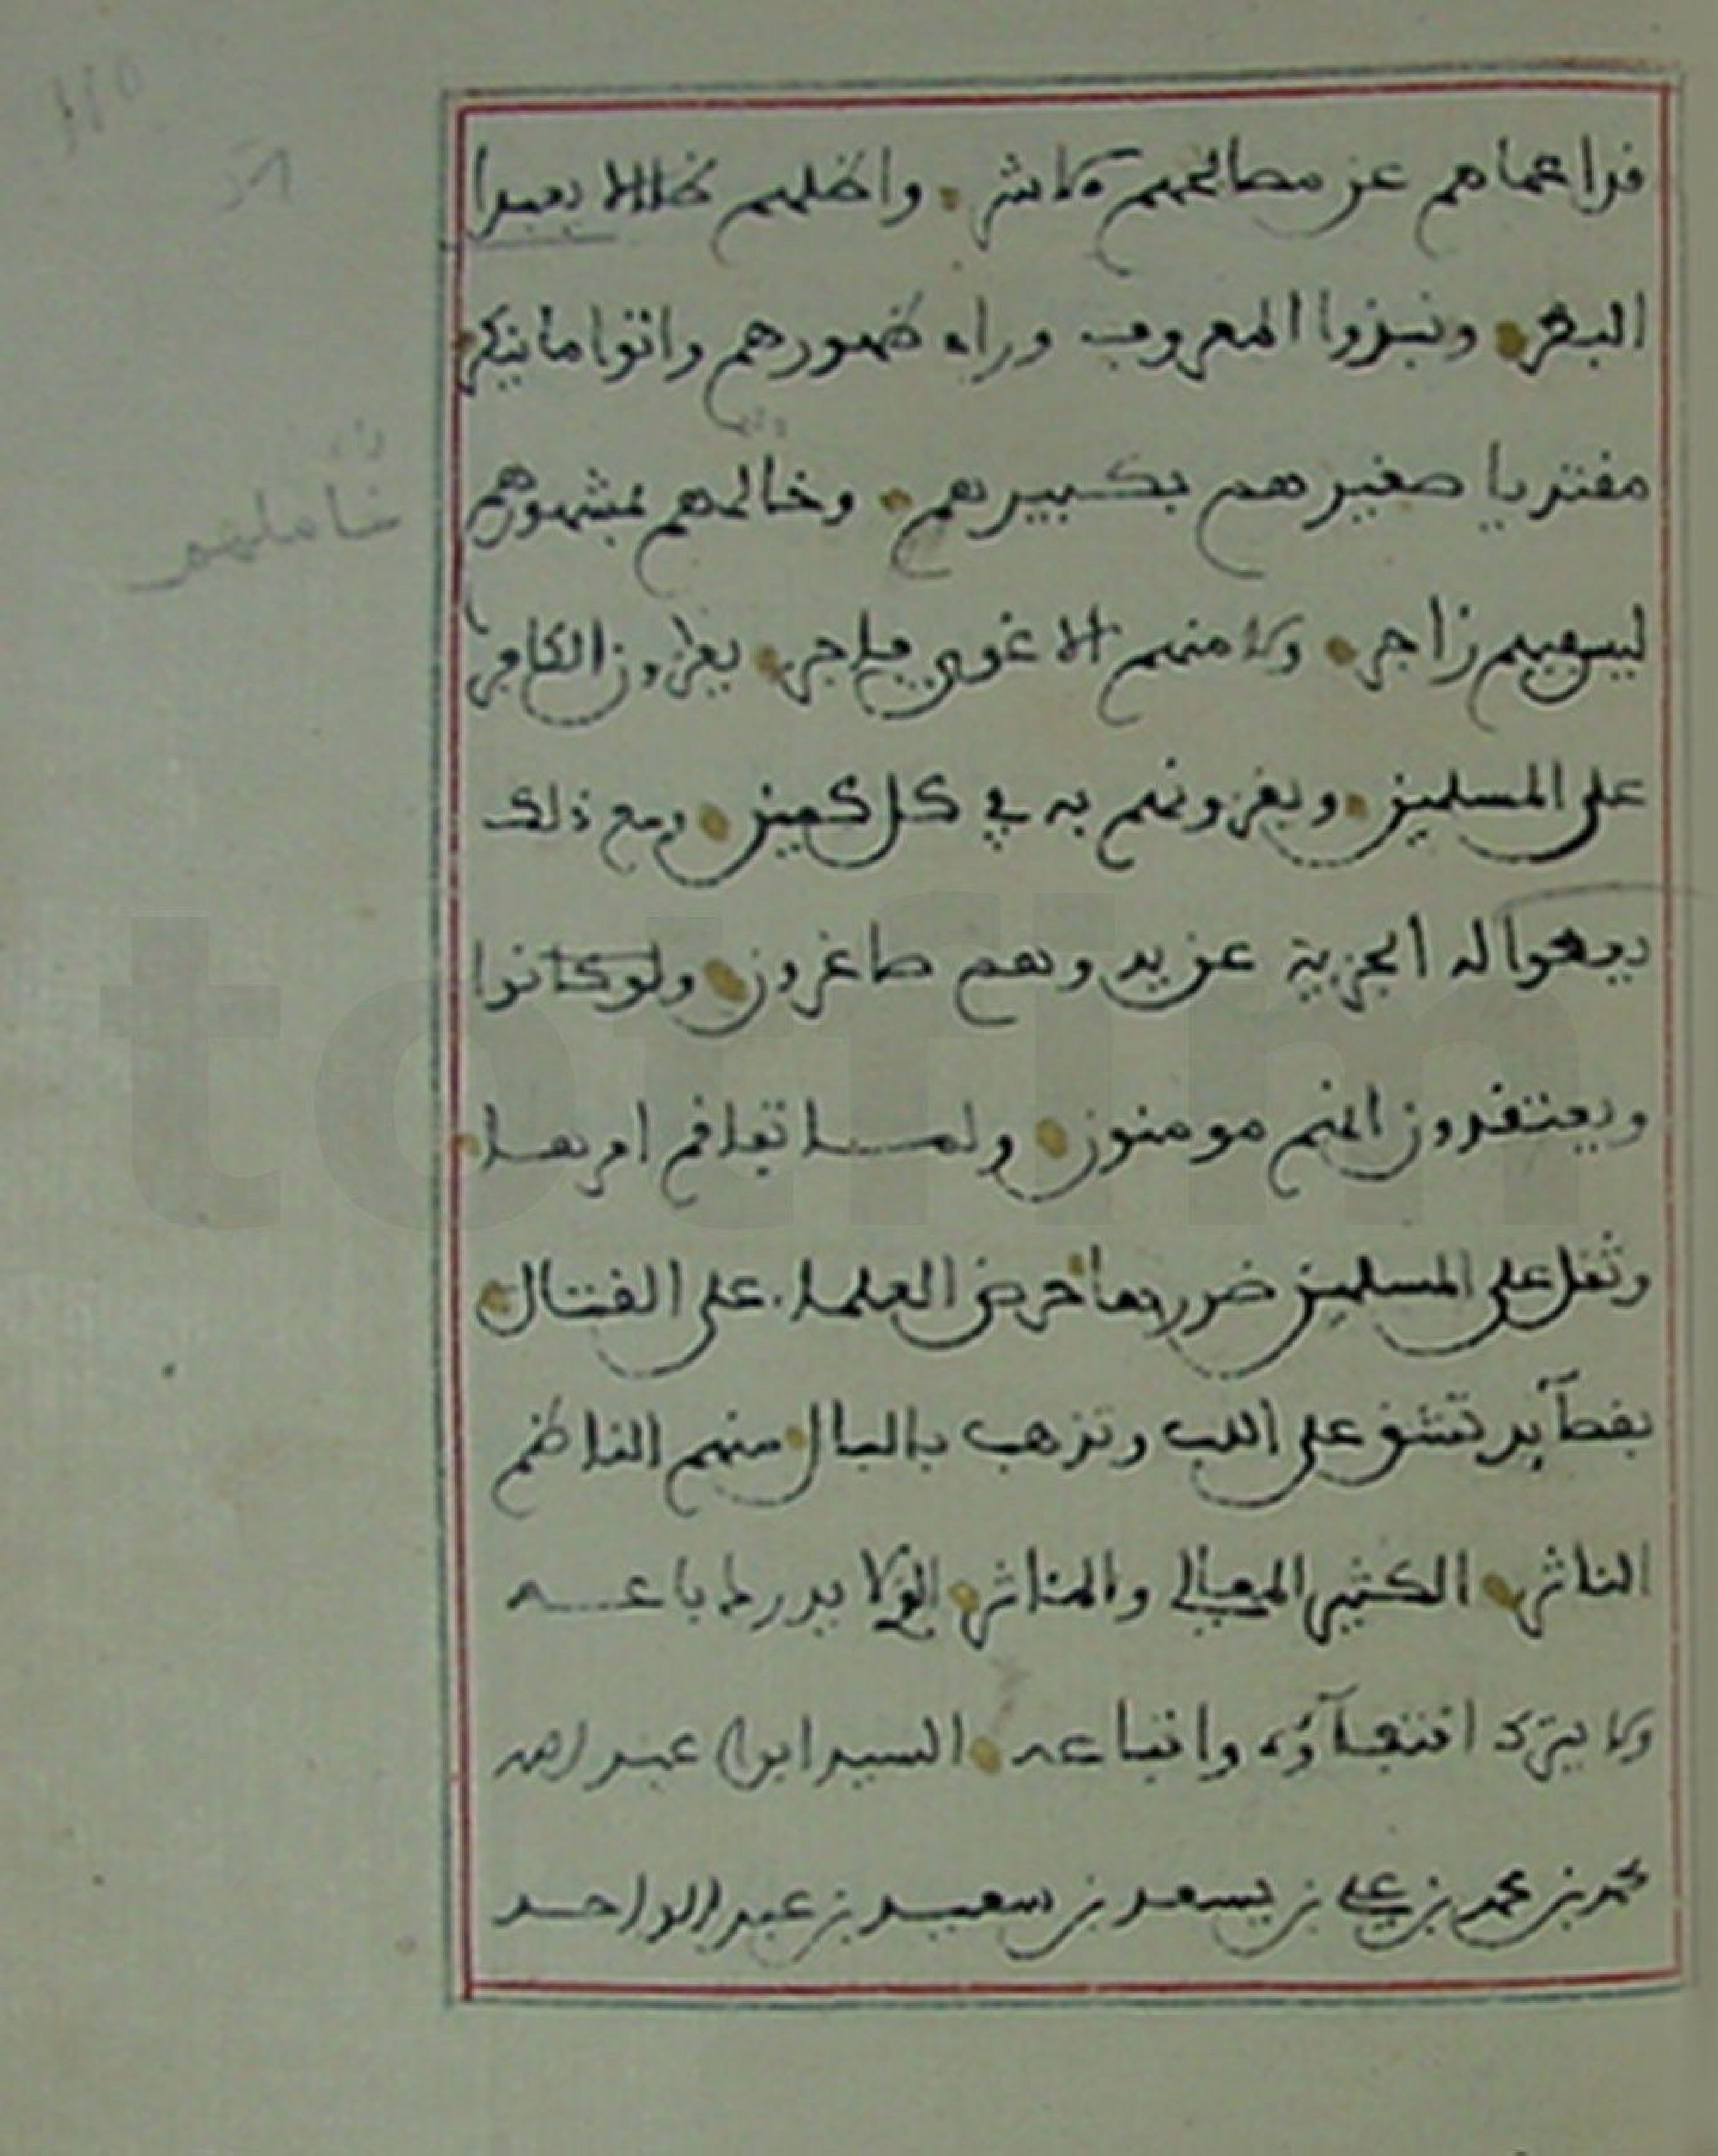 قد اعماهم عن مصالحهم كاشر واظلهم ظلالا بعيدا
البقر ونبذوا المعروف وراء ظهورهم واتوا ما ينكر
مقتديا صغيرهم بكبيرهم وخاملهم بمشهورهم
ليس فيهم زاجر ولا منهم الا غوي فاجر يعزرون الكافر
على المسلمين ويغزونهم به في كل كمين ومع ذلك
يعطوا له الجزية عن يد وهم صاغرون ولو كانوا
ويعتقدون انهم مومنون ولما تفاقم امرها
وثقل على المسلمين ضررها حرض العلماء على القتال
بقصآيد تشق على اللب وتذهب بالبال منهم الناظم
الناثر الكثير المعالي والمئاثر الذي لا يدرك باعه
ولا يترك اقتفآؤه واتباعه السيد ابو عبد الله
محمد بن محمد بن علي بن يسعد بن سعيد بن عبد الواحد
شاملهم
١١٥